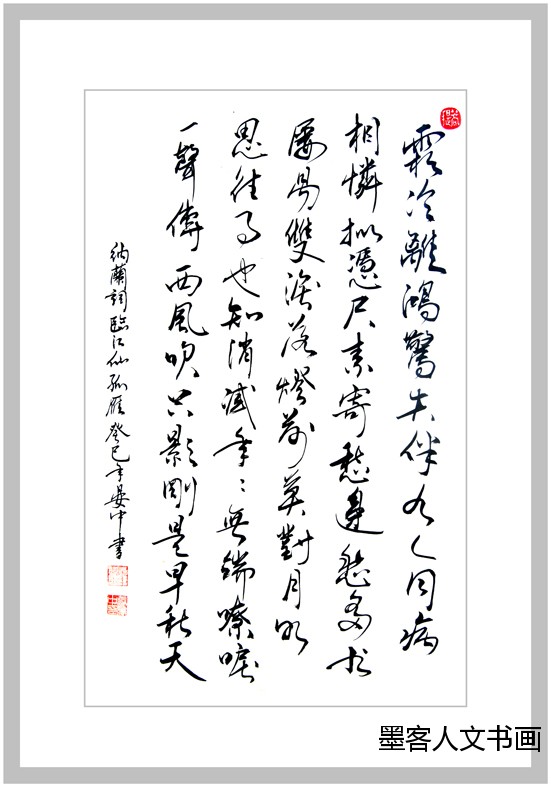 霜冷離鴻驚失伴有人同病
相憐拟憑尺素寄愁邊愁多书
屢易雙淚落燈前莫對月明
思往事也知消減年々無端嘹唳
一聲傳西風吹只影剛是早秋天
納蘭詞臨江仙孤雁癸巳年晏中書
墨客人文书画